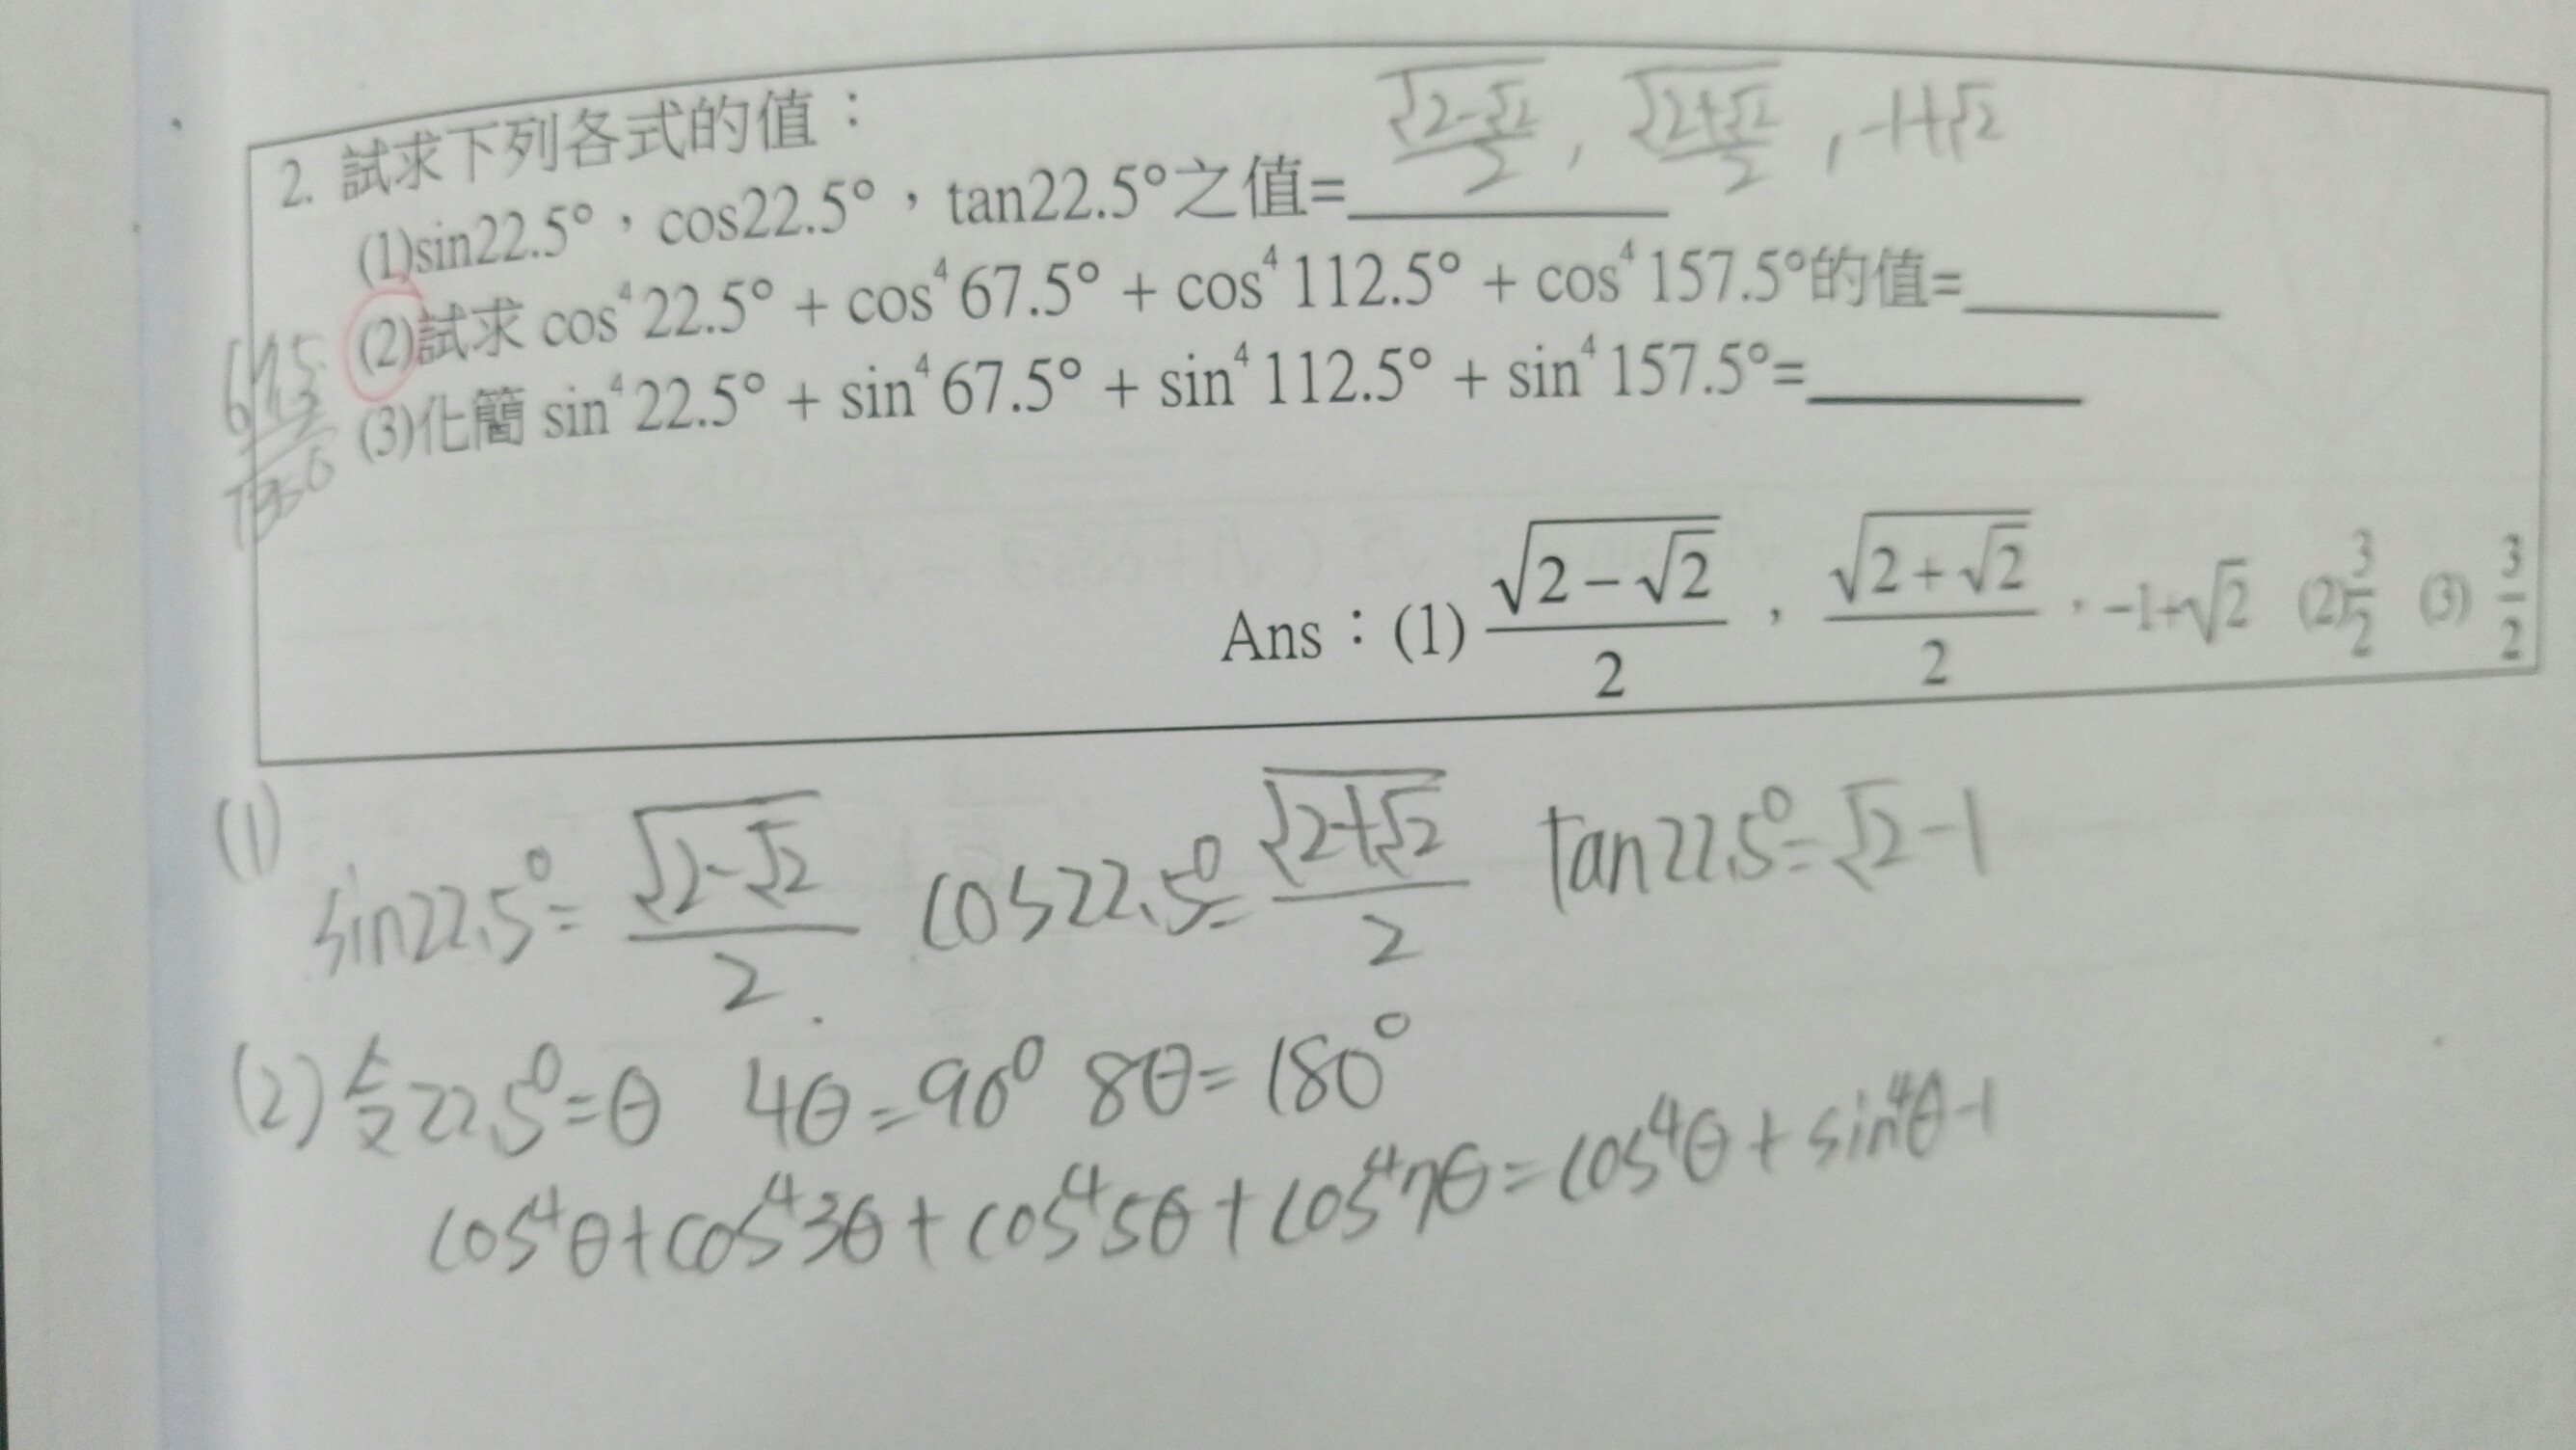 √(2-√2)/2 , √(2+√2)/2 , -1+√2
2. 試求下列各式的值：
(1)sin22.5°，cos22.5°，tan22.5°之值=________
(2)試求 cos⁴22.5° + cos⁴67.5° + cos⁴112.5° + cos⁴157.5°的值=________
(3)化簡 sin⁴22.5° + sin⁴67.5° + sin⁴112.5° + sin⁴157.5°=________
Ans：(1) √(2-√2)/2 ， √(2+√2)/2 ，-1+√2 (2) 3/2 (3) 3/2
(1)
sin22.5°= √(2-√2)/2 cos22.5°= √(2+√2)/2 tan22.5°=√2-1
(2) 令22.5°=θ 4θ=90° 8θ=180°
cos⁴θ+cos⁴3θ+cos⁴5θ+cos⁴7θ=cos⁴θ+sin⁴θ-1